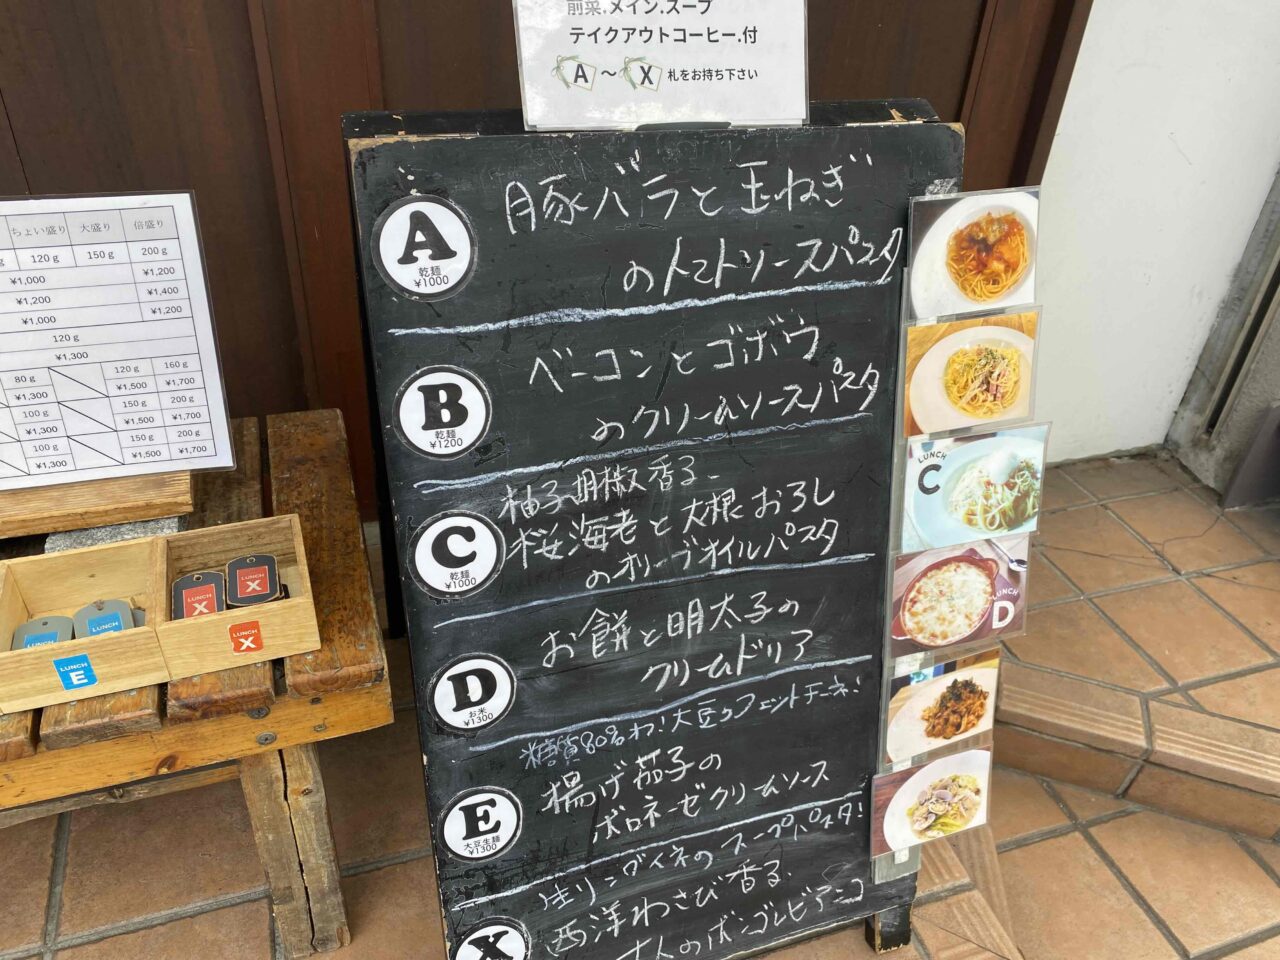 前菜.メイン.スープ
テイクアウトコーヒー.付
A 〜 X 札をお持ち下さい
ちょい盛り 大盛り 倍盛り
120g 150g 200g
¥1,000 ¥1,200
¥1,200 ¥1,400
¥1,000 ¥1,200
120g
¥1,300
80g 120g 160g
¥1,300 ¥1,500 ¥1,700
100g 150g 200g
¥1,300 ¥1,500 ¥1,700
100g 150g 200g
¥1,300 ¥1,500 ¥1,700
LUNCH
X
LUNCH
X
LUNCH
LUNCH
LUNCH
E
LUNCH
X
A
乾麺
¥1000
豚バラと玉ねぎ
のトマトソースパスタ
B
乾麺
¥1200
ベーコンとゴボウ
のクリームソースパスタ
C
乾麺
¥1000
柚子胡椒香る
桜海老と大根おろし
のオリーブオイルパスタ
D
お米
¥1300
お餅と明太子の
クリームドリア
E
大豆生麺
¥1300
糖質80%オフ!大豆のフェットチーネ!
揚げ茄子の
ボロネーゼクリームソース
X
生リングイネのスープパスタ!
西洋わさび香る
大人のボンゴレビアンコ
LUNCH
C
LUNCH
D